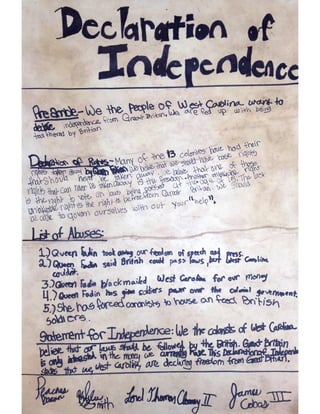 Declaration of
Independence
Preamble - We the people of West Carolina want to
declare independence from Great Britain. We are fed up with being
teathered by Britian
Declaration of Rights - Many of the 13 colonies have had their
rights taken away by Great Britain. We believe that we should have basic rights
that should never be taken away. We believe that one of those
rights that can never be taken away is the freedom
is the right to vote on laws being passed at The last
unalienable right is the right to be free from Great Britain. We should
be able to govern ourselves with out your "help".
List of Abuses:
1.) Queen Fadin took away our freedom of speech and press.
2.) Queen Fadin said British could pass laws, but West Carolina
couldn't.
3.) Queen Fadin blackmailed West Carolina for our money
4.) Queen Fadin has given soldiers power over the colonial government.
5.) She has forced colonists to house an feed British
soldiers.
Statement for Independence: We the colonists of West Carolina
believe that our laws should be followed by the British. Great Britain
is only interested in the money we currently have. This Declaration of Independence
states that we, West Carolina, are declaring freedom from Great Britian.
Lord Thomas II
James
Cobas III